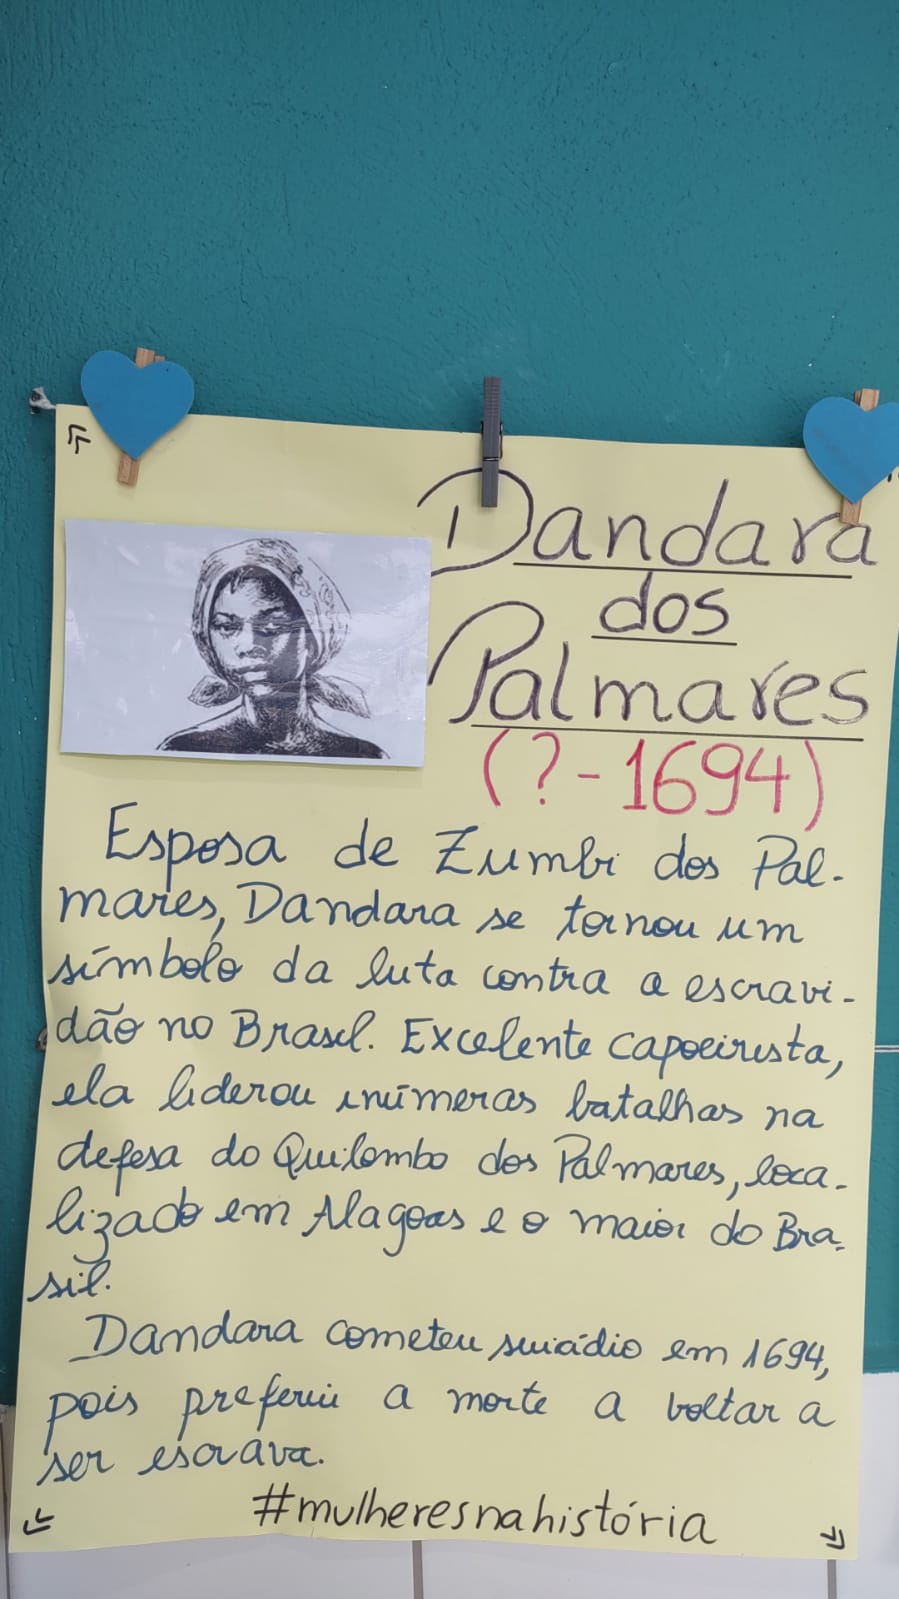 Dandara
dos
Palmares
(?-1694)
Esposa de Zumbi dos Pal-
mares, Dandara se tornou um
símbolo da luta contra a escravi-
dão no Brasil. Excelente capoeirista,
ela liderou inúmeras batalhas na
defesa do Quilombo dos Palmares, loca-
lizado em Alagoas e o maior do Bra-
sil.
Dandara cometeu suicídio em 1694,
pois preferiu a morte a voltar a
ser escrava.
#mulheresnahistória